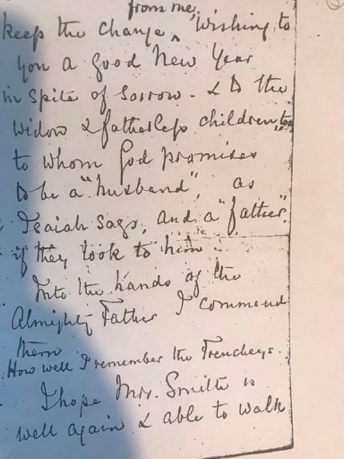 from me,
keep the change ^ Wishing to
you a good New Year
in spite of sorrow - & to the
widow & fatherless children, too
to whom God promises
to be a "husband", as
Isaiah says, and a "father",
if they look to him -
Into the hands of the
Almighty Father I commend
them
How well I remember the Trencheys.
I hope Mrs. Smith is
well again & able to walk